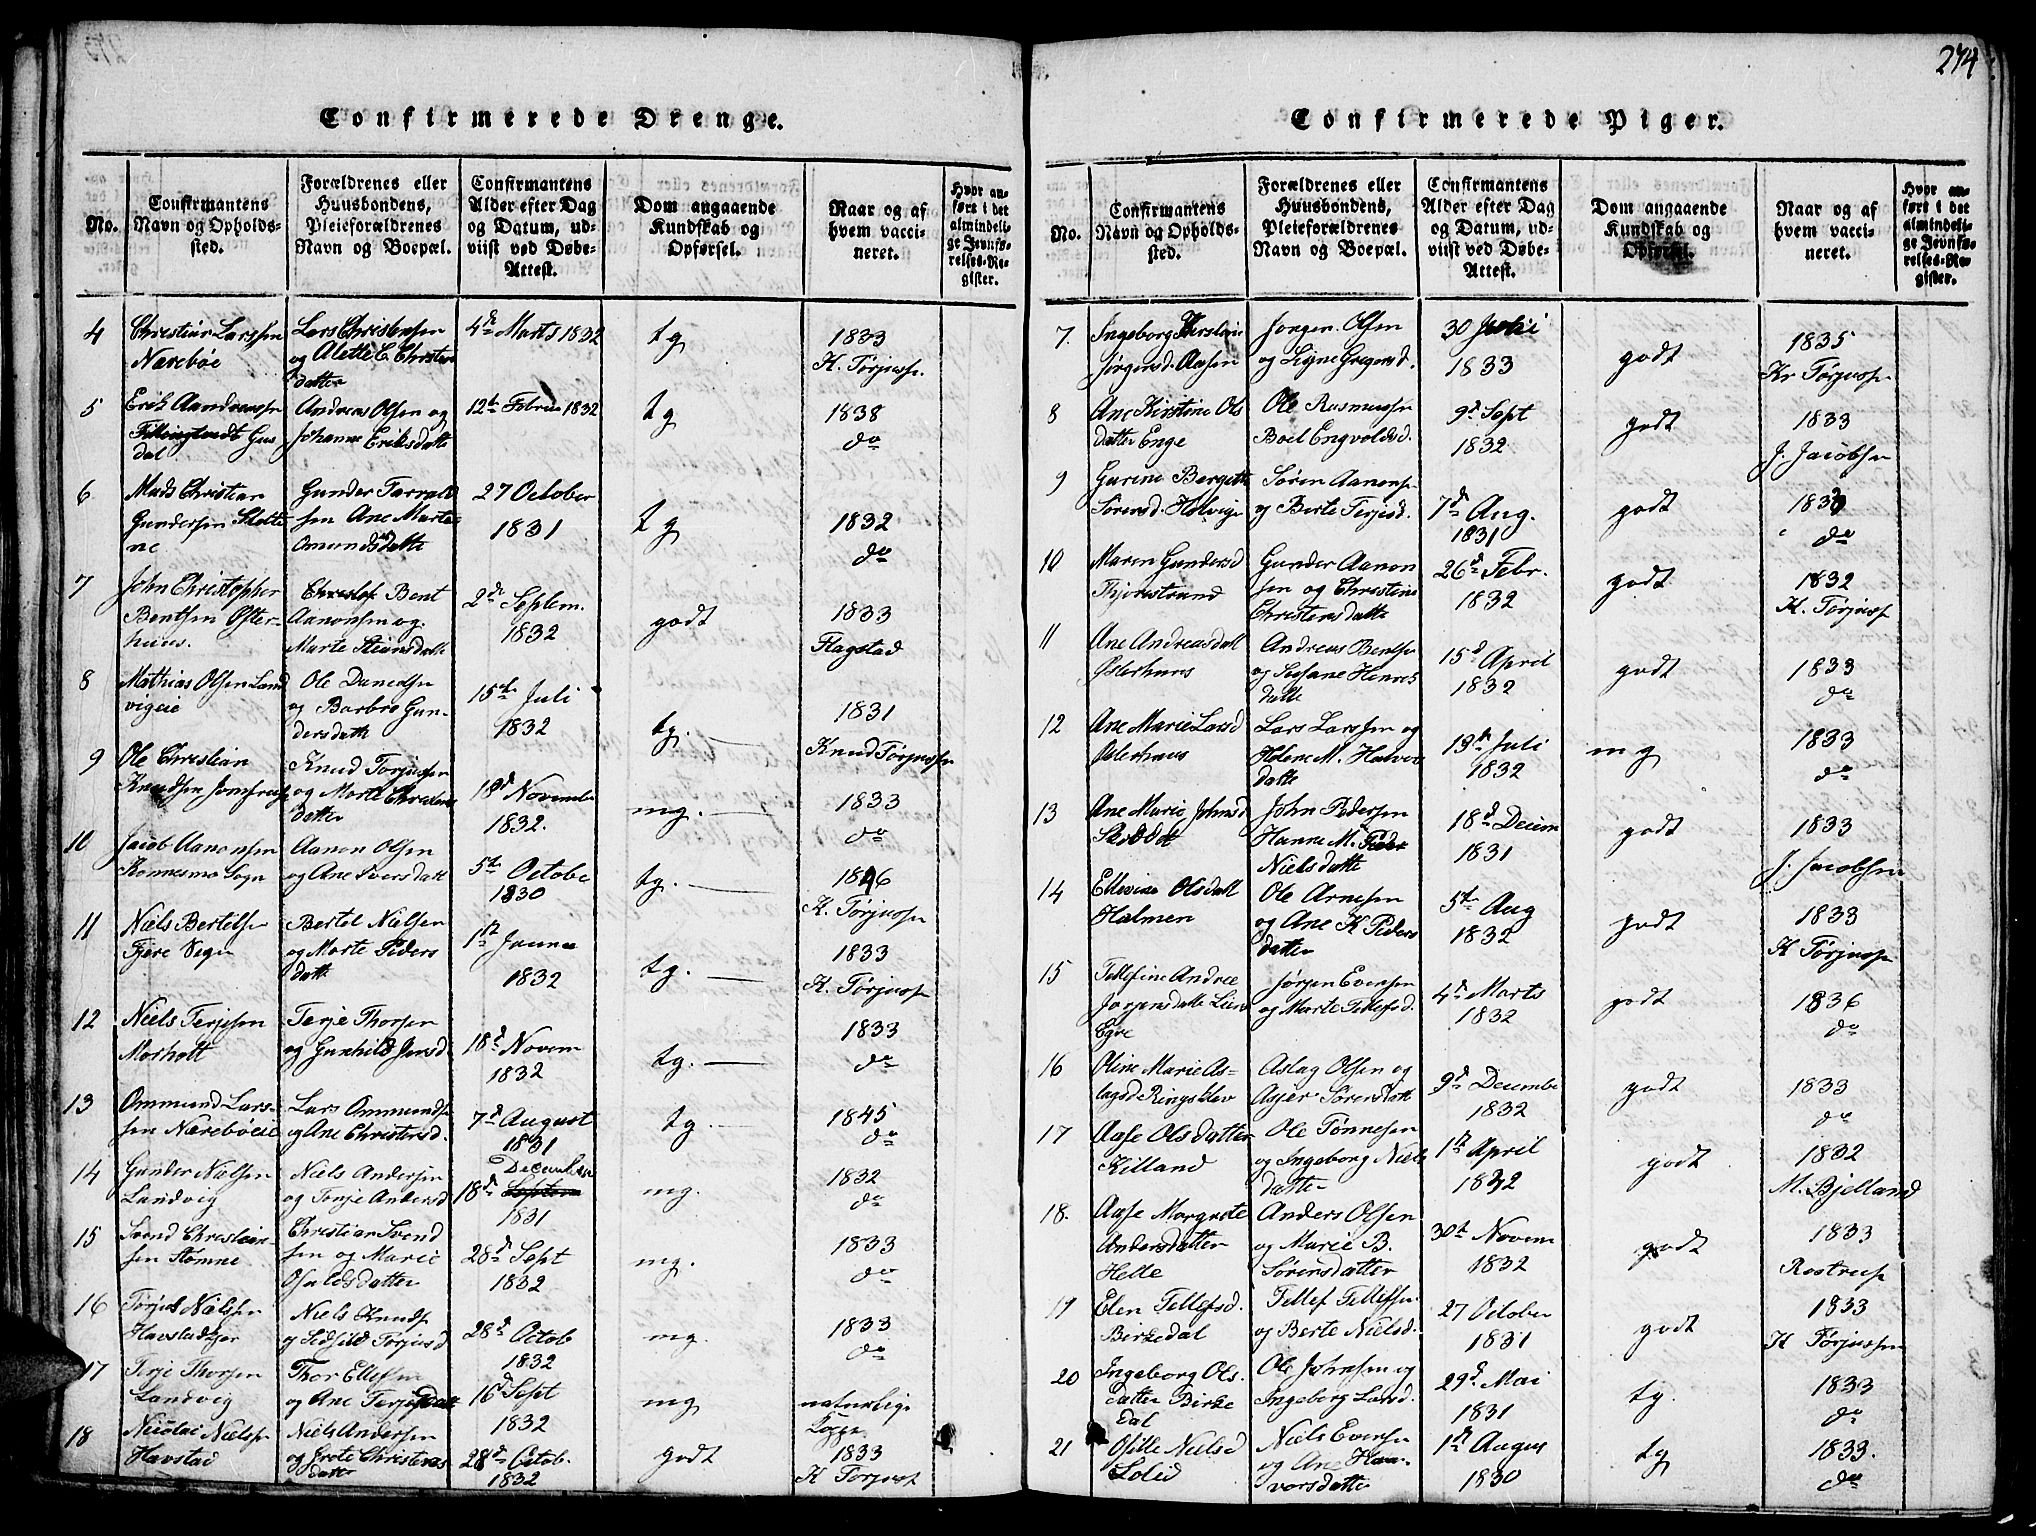 274
Confirmerede Drenge.
No.
Confirmantens
Navn og Opholds-
sted.
Forældrenes eller
Huusbondens,
Pleieforældrenes
Navn og Boepæl.
Confirmantens
Alder efter Dag
og Datum, ud-
viist ved Døbe-
Attest.
Dom angaaende
Kundskab og
Opførsel.
Naar og af
hvem vacci-
neret.
Hvor an-
ført i det
almindeli-
ge Jevnfø-
relses-Re-
gister.
4
Christian Larssen
Nærebøe
Lars Christensen
og Alette C. Christens
datter
4de Marts 1832
tg
1833
K. Tørjussn.
5
Erik Andreassn
Gus
dal
Andreas Olsen og
Johanne Eriksdatte
12te Februa 1832
tg
1838
do
6
Mads Christian
Gundersen Slette
ne
Gunder Tarrald
sen Ane Marte
Omundsdatte
27 October
1831
tg
1832
do
7
John Christopher
Bentsen Øster-
huus.
Bent
Aanonsen og
Marte Steensdatt
2de Septem.
1832
godt
1833
Flagstad
8
Mathias Olsen Land
vigeie
Ole Danielsn
og Barbro Gun-
dersdatt
15de Juli
1832
tg.
1831
Knud Tørjussn
9
Ole Christian
Knudsen Jomfrue
Knud Torjussen
og Marte Christens
datter
18d November
1832.
mg.
1833
do
10
Jacob Aanonsen
Konnesmo Sogn
Aanon Olsen
og Ane Sversdatt
5te Octobe
1830
tg.
1846
K. Tørjussn
11
Niels Bertelsn
Fjere Sogn
Bertel Nielsen
og Marte Peders
datt
1st Janua
1832
tg.
1833
K. Tørjussn
12
Niels Terjesen
Morholt
Terje Thorsen
og Gunhild Jensd
18d Novem
1832
tg.
1833
do
13
Ommund Lars-
sen Nærebøeie
Lars Ommundsn
og Ane Christensd.
7d August
1831
tg.
1845
do
14
Gunder Nielsen
Landvig
Niels Andersen
og Tonje Andersd
December
18d Septem
1831
mg.
1832
do
15
Svend Christian-
sen Stømne
Christian Svend
sen og Marie
Osuldsdatter
28d Sept
1832
mg.
1833
do
16
Tørjus Nielsen
Havstadeier
Niels Knudsn
og Sidsild Tørjusd
28d Octob
1832
mg.
1833
do
17
Terje Thorsen
Landvig
Thor Ellefsen
og Ane Terjesdatt
16d Sept
1832
mg
naturlige
Kopper
18
Nicolai Nielsn
Havstad
Niels Andersen
og Grete Christens
datte
28d Octob.
1832
godt
1833
K Tørjussn
Confirmerede Piger.
No.
Confirmantens
Navn og Opholds-
sted.
Forældrenes eller
Huusbondens,
Pleieforældrenes
Navn og Boepæl.
Confirmantens
Alder efter Dag
og Datum, ud-
viist ved Døbe-
Attest.
Dom angaaende
Kundskab og
Opførsel.
Naar og af
hvem vacci-
neret.
Hvor an-
ført i det
almindeli-
ge Jevnfø-
relses-Re-
gister.
7.
Ingeborg Kirstine
Jørgensd. Aasen
Jørgen Olsen
og Signe Gregersd.
30 Juli
1833
godt
1835
Kr Tørjussn
8
Ane Kirstine Ols
datter Enge
Ole Rasmussn
Boel Engvoldsd.
9d Sept
1832
godt
1833
J. Jacobsen
9
Gurine Bergitte
Sørensd. Holvige
Søren Aanonsn
og Berte Terjesd.
7d Aug.
1831
godt
183
do
10
Maren Gundersd
Thjorestrand
Gunder Aanon
sen og Christine
Christensdatte
26d Febr.
1832
godt
1832
K. Tørjussn
11
Ane Andreasdatt
Østerhuus
Andreas Bentsn
og Susane Henrs
datte
15d April
1832
godt
1833
do
12
Ane Marie Larsd
Østerhuus
Lars Larssen og
Helene M. Halvor
datte
13de Juli
1832
mg
1833
do
13
Ane Marie Johnsd
John Pedersen
Hanne M.
Nielsdatte
18d Decem
1831
godt
1833
J. Jacobsen
14
Ellevine Olsdatt
Holmen
Ole Arnesen
og Ane K Peders
datter
5te Aug
1832
godt
1833
K Tørjussn
15
Tellefine Andree
Jørgensdatte Lien
Egre
Jørgen Evensen
og Marte Tellefsd.
4d Marts
1832
godt
1836
do
16
Oline Marie As-
lagsd Ringsklev
Aslag Olsen og
Asjer Sørensdatt
9d Decembe
1832
godt
1833
do
17
Aase Olsdatter
Killand
Ole Tønnesen
og Ingeborg Niels
datte
1st April
1832
godt
1832
M. Bjelland
18.
Aase Margrete
Andersdatter
Helle
Anders Olsen
og Marie B.
Sørensdatter
30te Novem
1832
godt
1833
Rostrup
19
Elen Tellefsd.
Birkedal
Tellef Tellefsn
og Berte Nielsd.
27 October
1831
godt
1833
K Tørjussen
20
Ingeborg Ols.
datter Birke
dal
Ole Johnsen og
Ingeborg Larsd.
29d Mai
1831
tg.
1833
do
21
Osille Nielsd
Solid
Niels Evensn
og Ane Haa-
vorsdatte
1st Augus
1830
tg
1833.
do